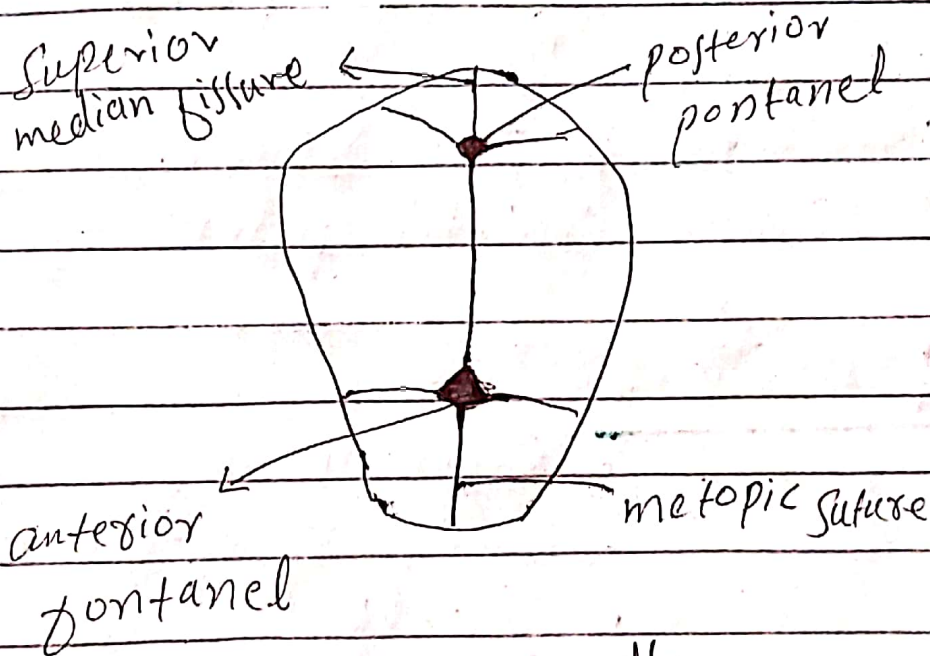 Superior
median fissure
posterior
pontanel
anterior
fontanel
metopic suture